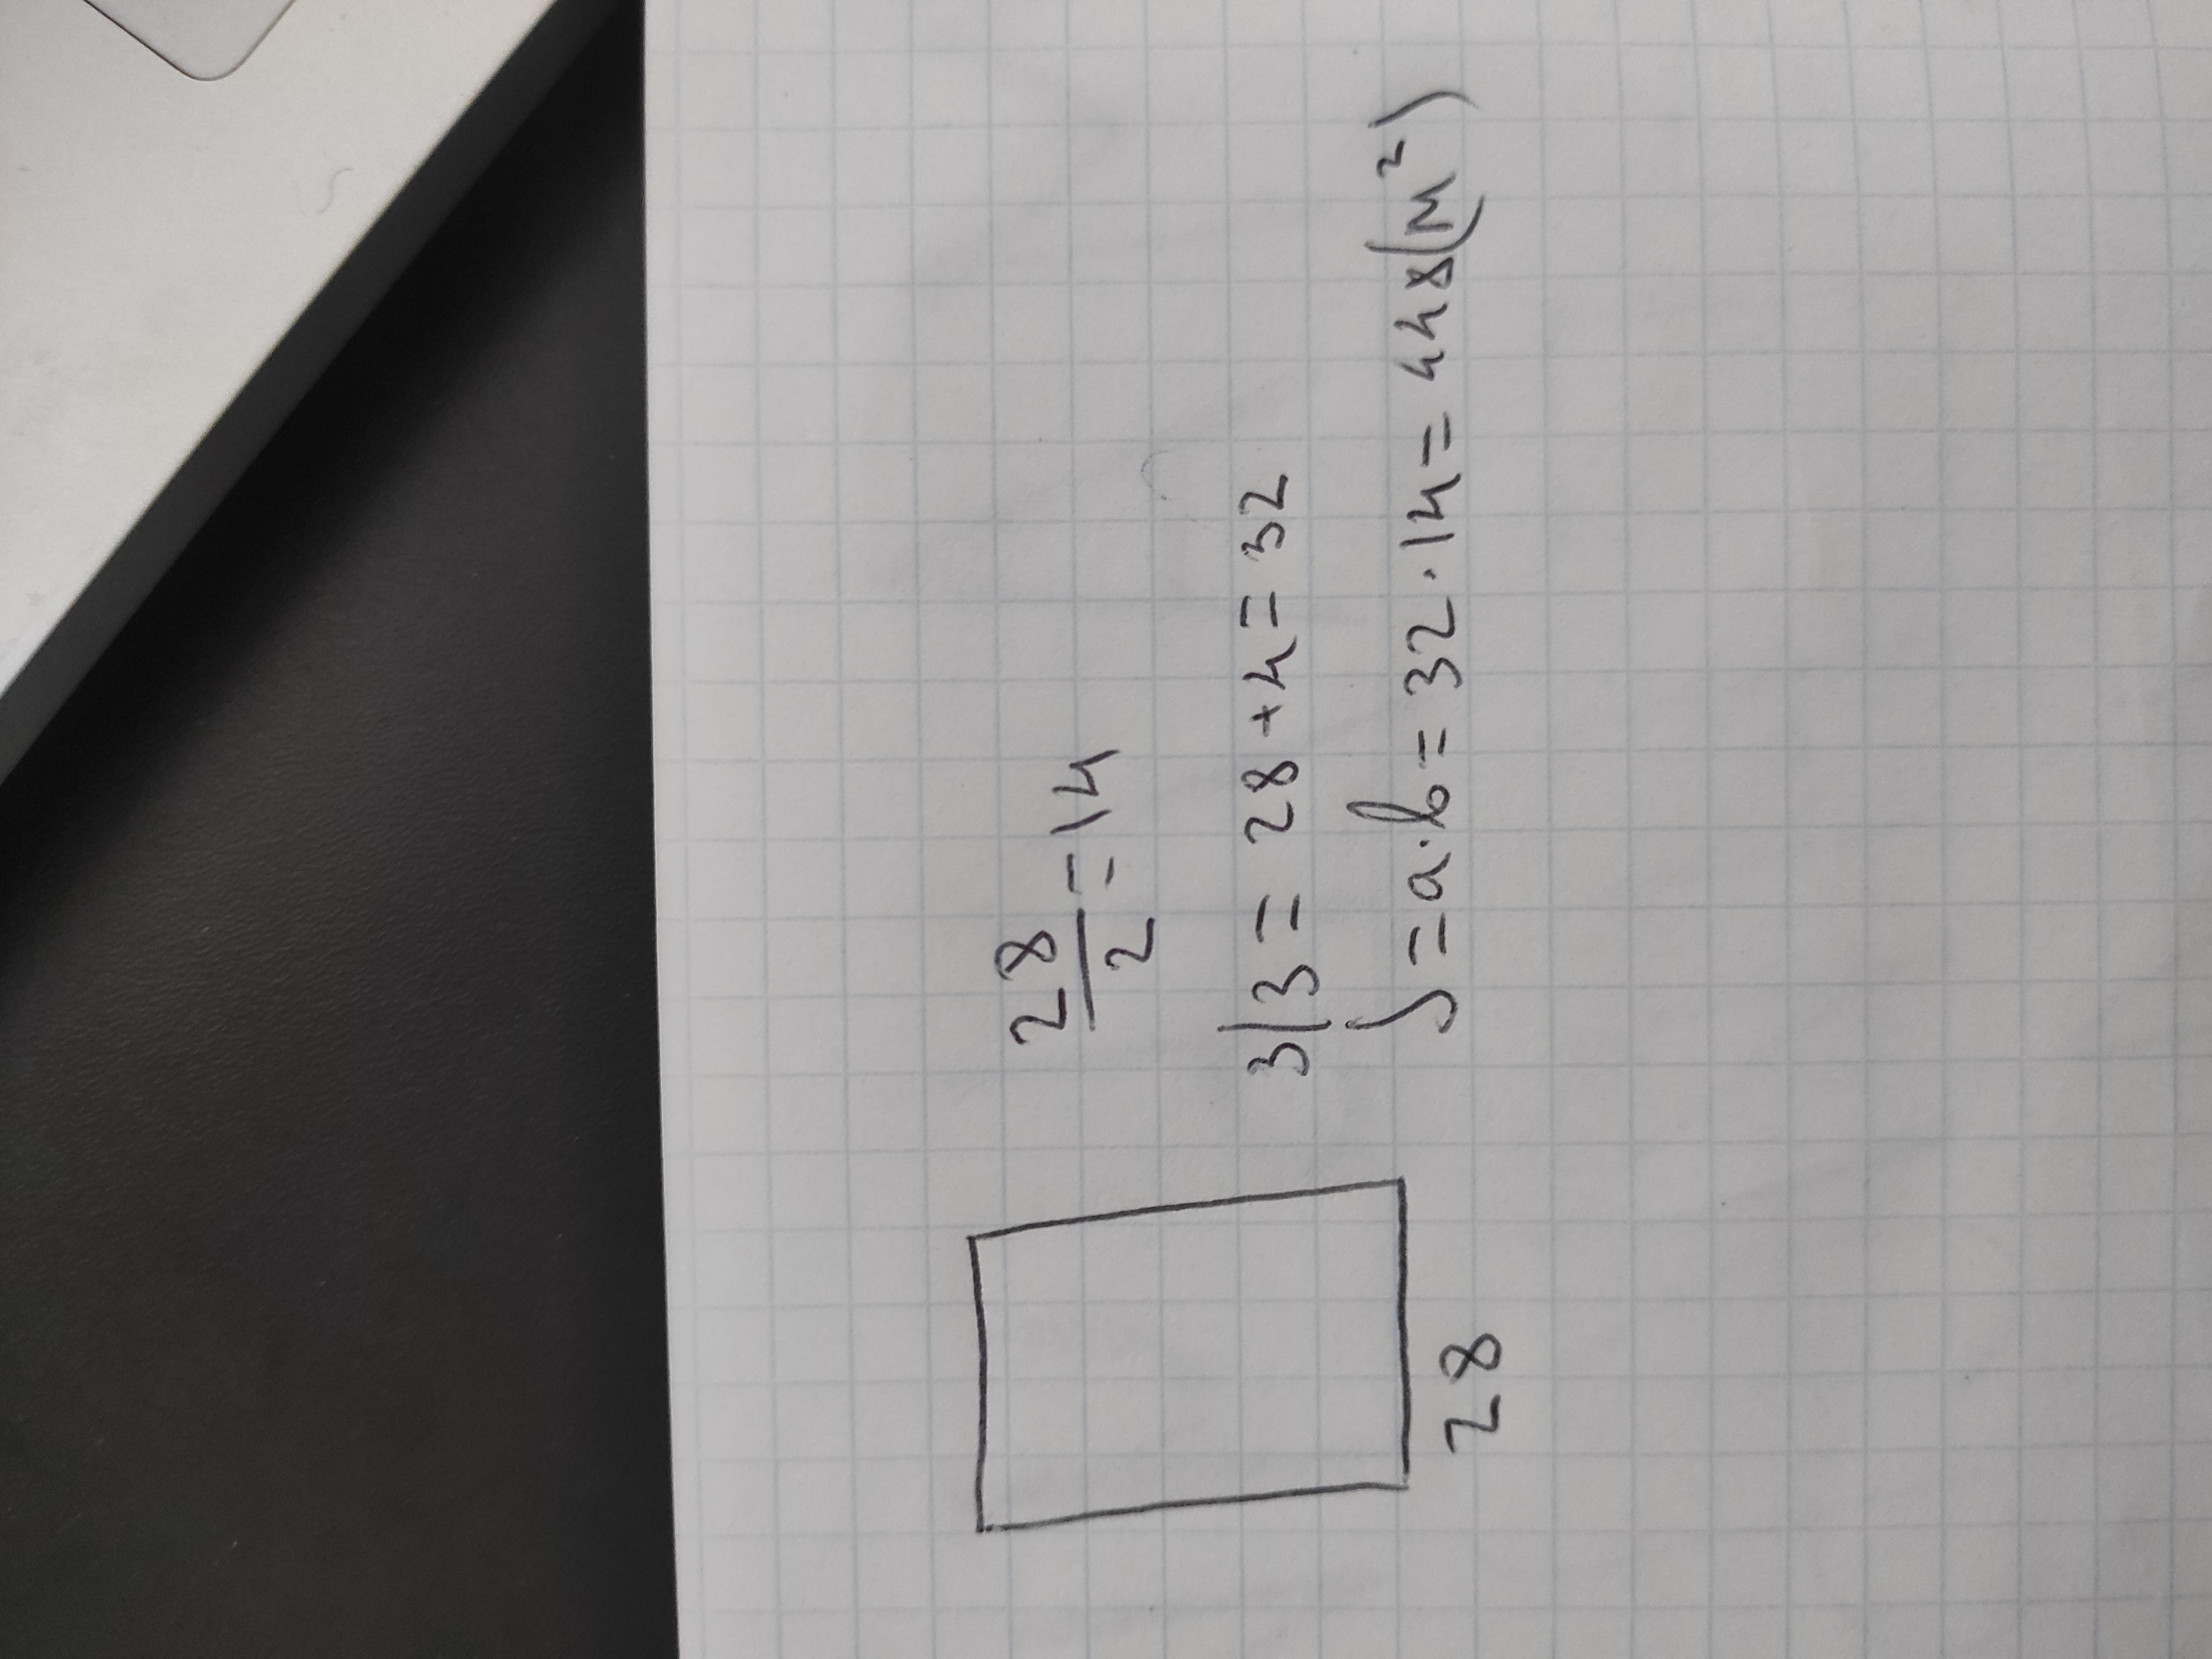 28/2 = 14
3/3 = 28 + 4 = 32
S = a · b = 32 · 14 = 448 (м²)
28